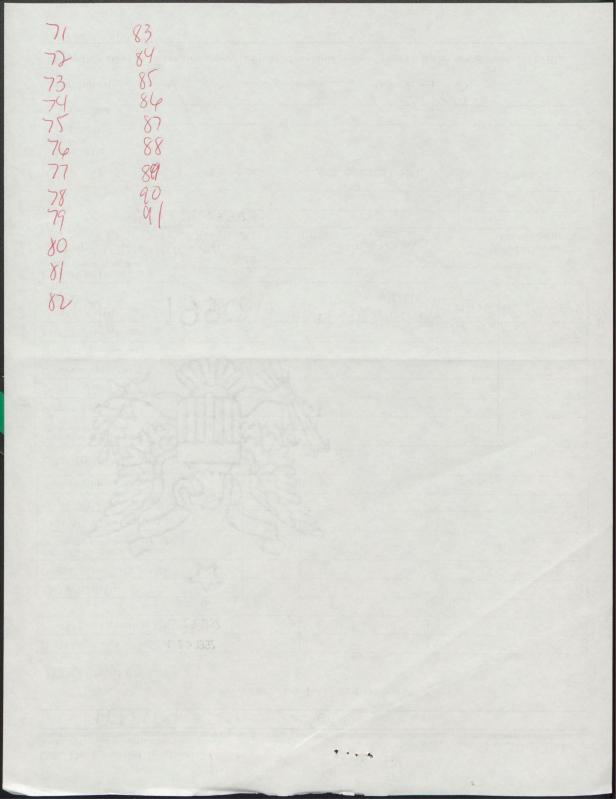 71
72
73
74
75
76
77
78
79
80
81
82
83
84
85
86
87
88
89
90
91